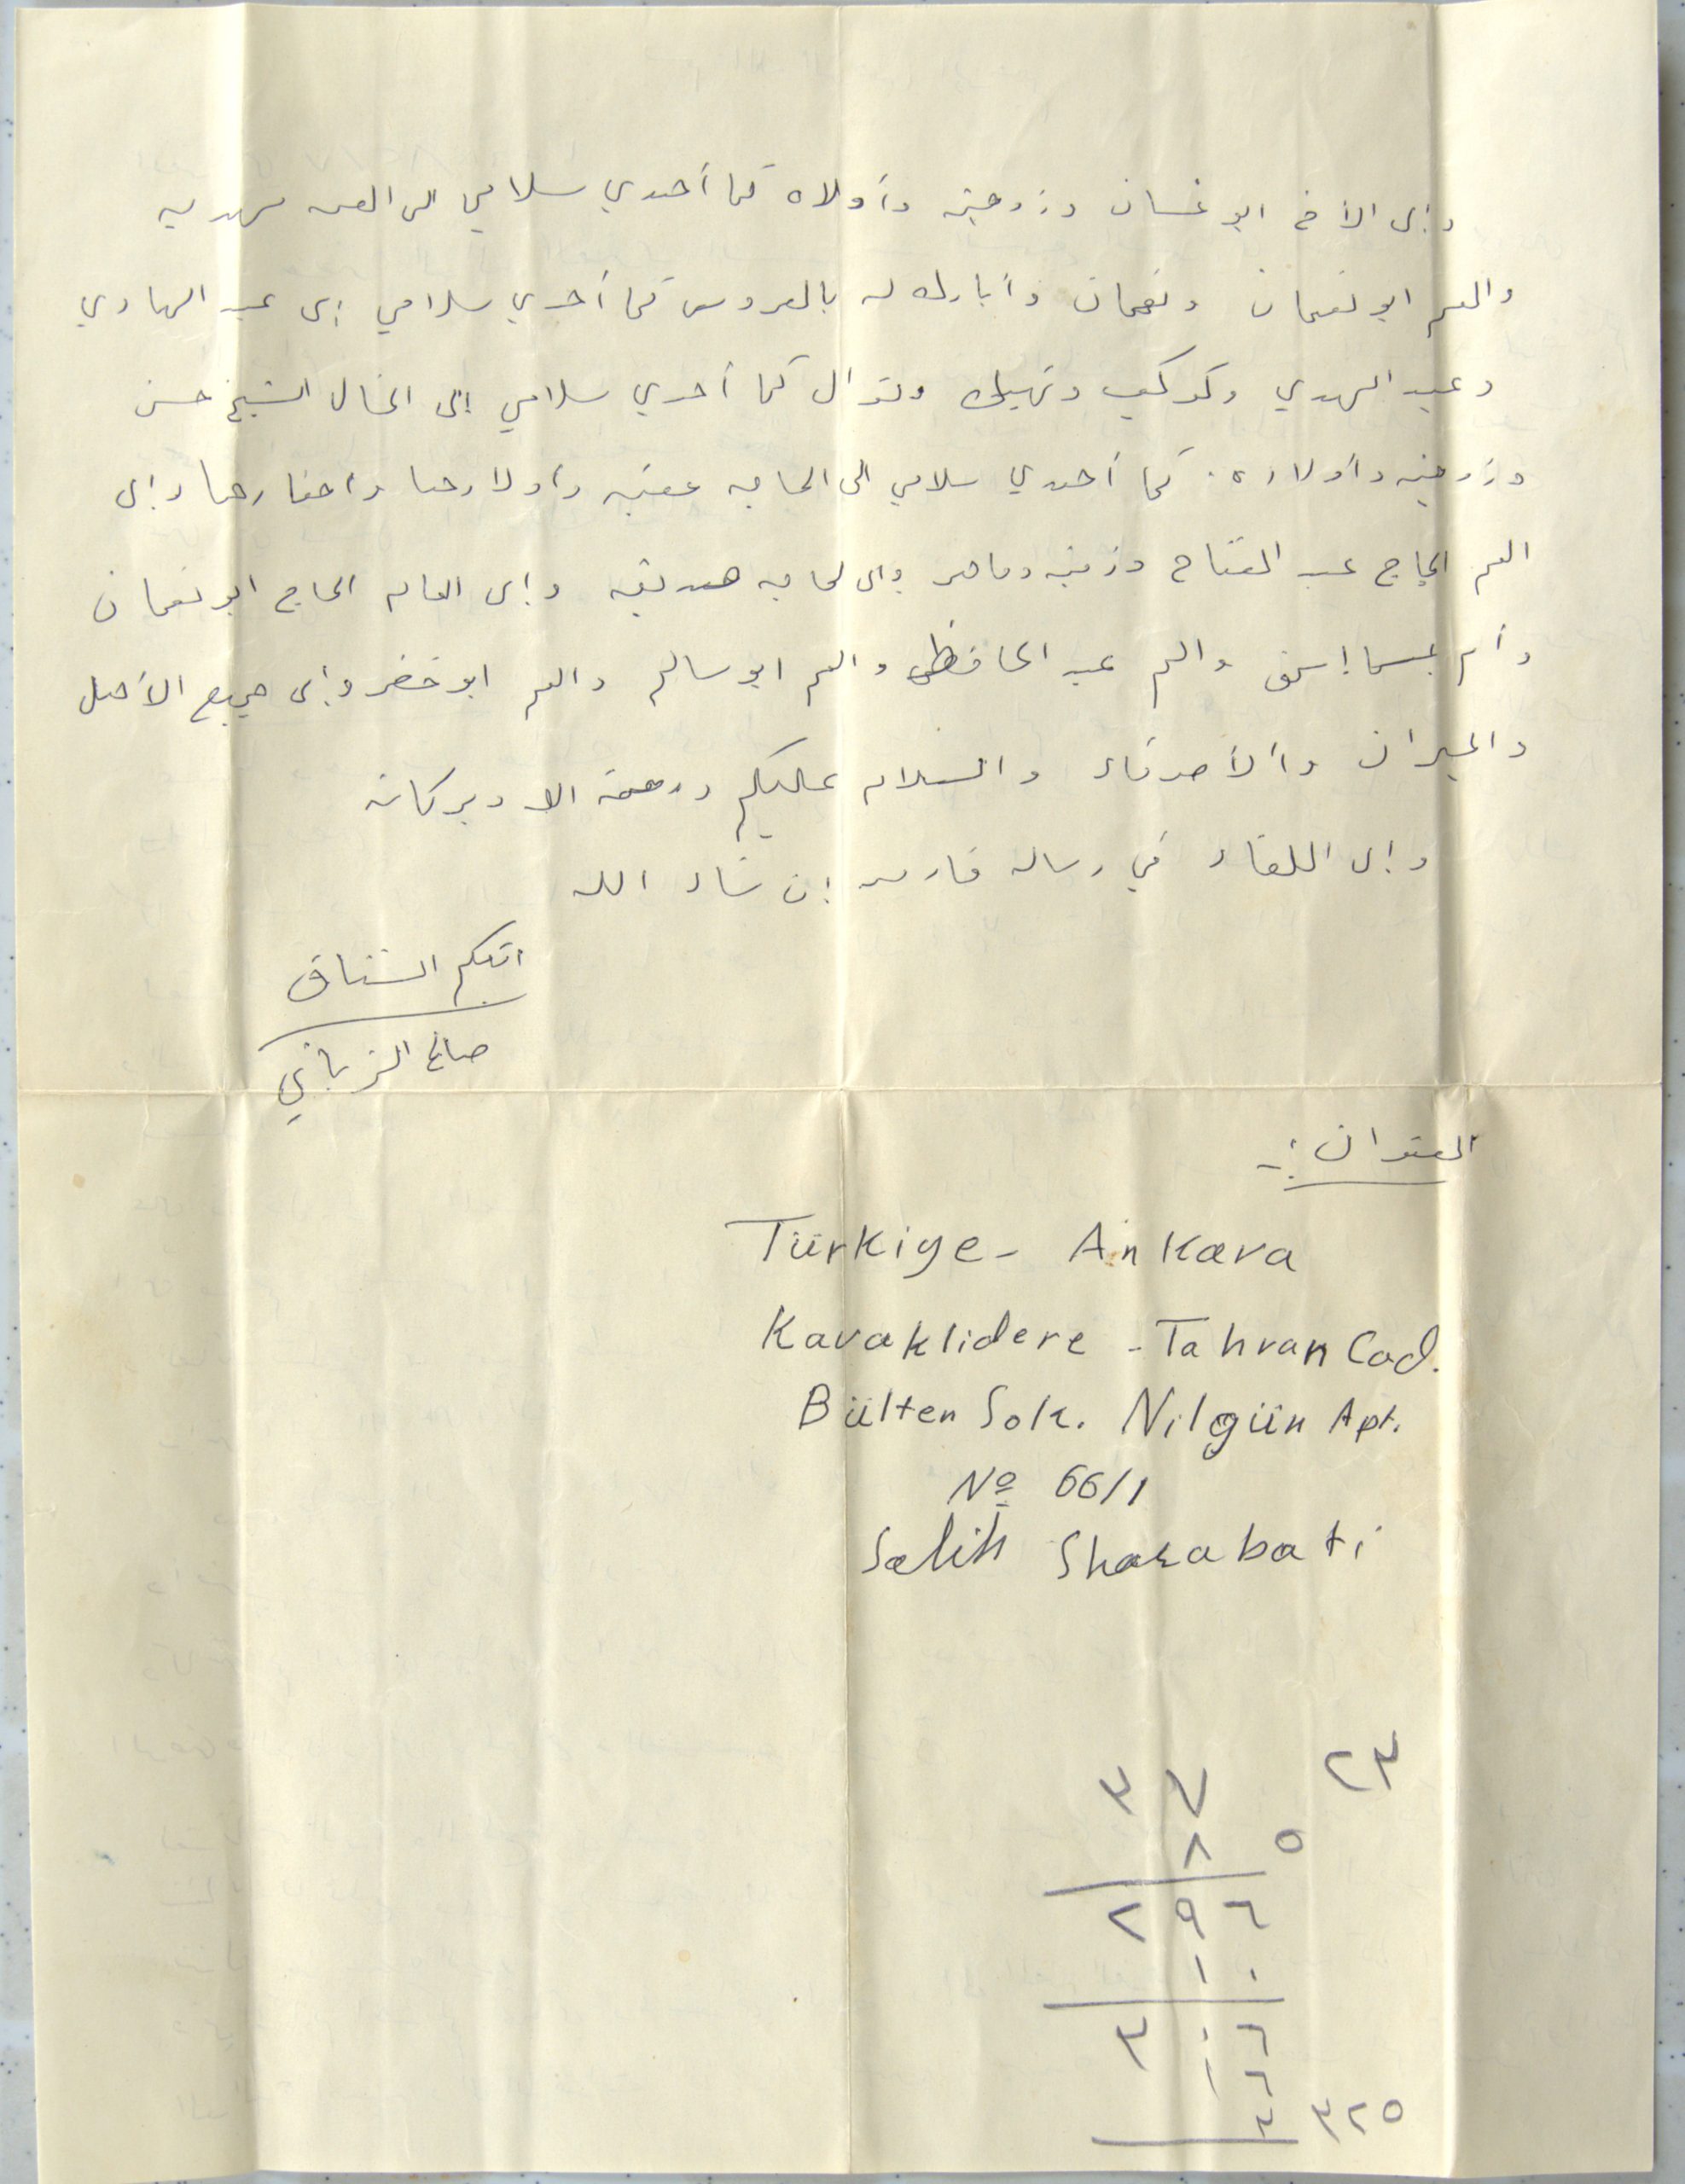 وإلى الأخ ابو غسان وزوجته وأولاه كما أهدي سلامي الى العمه مهديه
والعم ابو نعمان ونعمان وأبارك له بالعروس كما أهدي سلامي إلى عبد الهادي
وعبد المهدي وكوكب ونهيل ونوال كما أهدي سلامي إلى الخال الشيخ حسن
وزوجته وأولاده. كما أهدي سلامي الى الحاجه وأولادها واحفادها وإلى
العم الحاج عبد الفتاح وماهر وإلى الحاجه وإلى الحاج ابو نعمان
وأم والعم عبد الحافظ والعم ابو سالم والعم ابو خضر وإلى جميع الأهل
والجيران والأصدقاء والسلام عليكم ورحمة الله وبركاته
وإلى اللقاء في رساله قادمه إن شاء الله
المشتاق
صالح الشرباتي
العنوان :-
Türkiye - Ankara
Kavaklidere - Tahran Cad.
Bülten Sok. Nilgün Apt.
Nº 66/1
Salih Sharabati
٢٣
٣٧
٨ ٥
٢٩٦
١٠
٣٠٦
١٦
٣ ٣٢٥